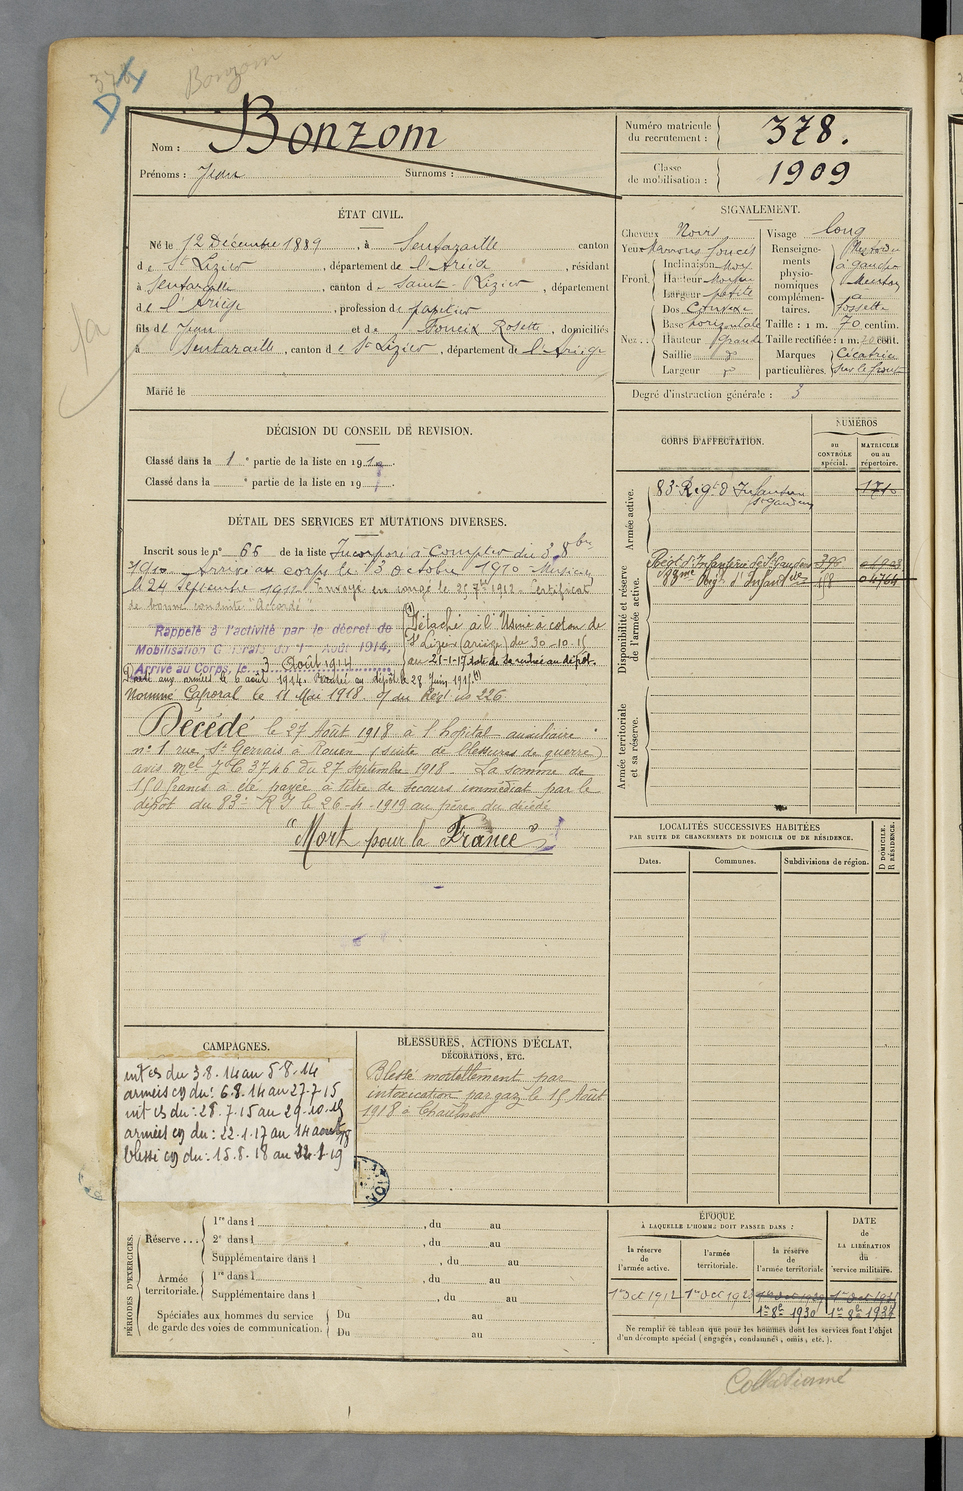 Bonzom
Nom : Bonzom
Prénoms : Jean Surnoms :
Numéro matricule du recrutement : 378.
Classe de mobilisation : 1909
ÉTAT CIVIL.
Né le 12 Décembre 1889, à Sentaraille canton
de St Lizier, département de l'Ariège, résidant
à Sentaraille, canton de Saint-Lizier, département
de l'Ariège, profession de papetier
fils de Jean et de Rosette, domiciliés
à Sentaraille, canton de St Lizier, département de l'Ariège
Marié le
SIGNALEMENT.
Cheveux Noirs
Yeux Marrons foncés
Front. Inclinaison Moy
Hauteur Moyen
Largeur petite
Nez... Dos Convexe
Base horizontale
Hauteur Grande
Saillie
Largeur
Visage long
Renseignements physionomiques complémentaires. à gauche Menton à fossette
Taille : 1 m. 70 centim.
Taille rectifiée : 1 m. cent.
Marques particulières. Cicatrice sur le front
Degré d'instruction générale : 3
DÉCISION DU CONSEIL DE REVISION.
Classé dans la 1e partie de la liste en 1910.
Classé dans la e partie de la liste en 19 .
DÉTAIL DES SERVICES ET MUTATIONS DIVERSES.
Inscrit sous le n° 66 de la liste Incorporé à Compter du 3 8bre
1910 Arrivé au corps le 3 octobre 1910 Musicien
le 24 Septembre 1911 Envoyé en congé le 25 7bre 1912. Certificat
de bonne conduite "Accordé"
Rappelé à l'activité par le décret de
Mobilisation Générale du 1er Août 1914,
Arrivé au Corps, le 3 Août 1914
(1) Détaché à l'Usine à colon de
St Lizier (ariège) du 30-10-15
au 21-1-17 date de sa rentrée au dépôt.
Parti aux armées le 6 août 1914. Rentré au dépôt le 28 Juin 1915 (1)
Nommé Caporal le 11 Mai 1918 O/ du Régt No 226
Décédé le 27 Août 1918 à l'hôpital auxiliaire
n° 1 rue St Gervais à Rouen (suite de blessures de guerre)
avis mel 3746 du 27 septembre 1918. La somme de
150 francs a été payée à titre de secours immédiat par le
dépôt du 83e R I le 26-4-1919 au père du décédé
"Mort pour la France"
CORPS D'AFFECTATION.
NUMÉROS
au CONTRÔLE spécial.
MATRICULE ou au répertoire.
Armée active.
83e Régt d'Infanterie St Gaudens 1710
Disponibilité et réserve de l'armée active.
Régt d'Infanterie de St Gaudens 396
83me Rég. d'Infanterie 04764
Armée territoriale et sa réserve.
LOCALITÉS SUCCESSIVES HABITÉES
PAR SUITE DE CHANGEMENTS DE DOMICILE OU DE RÉSIDENCE.
Dates.
Communes.
Subdivisions de région.
D DOMICILE.
R RÉSIDENCE.
CAMPAGNES.
int cs du 3.8.14 au 5.8.14
armées cg du : 6.8.14 au 27.7.15
int cs du : 28.7.15 au 29.10.15
armées cg du : 22.1.17 au 14 aout 18
blessé cg du : 15.8.18 au
BLESSURES, ACTIONS D'ÉCLAT,
DÉCORATIONS, ETC.
Blessé mortellement par
intoxication par gaz le 15 Août
1918 à Chaulnes
PÉRIODES D'EXERCICES.
Réserve ... 1re dans l , du au
2e dans l , du au
Supplémentaire dans l , du au
Armée territoriale. 1re dans l , du au
Supplémentaire dans l , du au
Spéciales aux hommes du service
de garde des voies de communication.
Du au
Du au
ÉPOQUE
À LAQUELLE L'HOMME DOIT PASSER DANS :
la réserve de l'armée active.
l'armée territoriale.
la réserve de l'armée territoriale
DATE de LA LIBÉRATION du service militaire.
1er Oct 1912
1er Oct 1923
1er Oct 1929
1er 8e 1930
1er 8e 1934
Ne remplir ce tableau que pour les hommes dont les services font l'objet
d'un décompte spécial (engagés, condamnés, omis, etc.).
Collationné